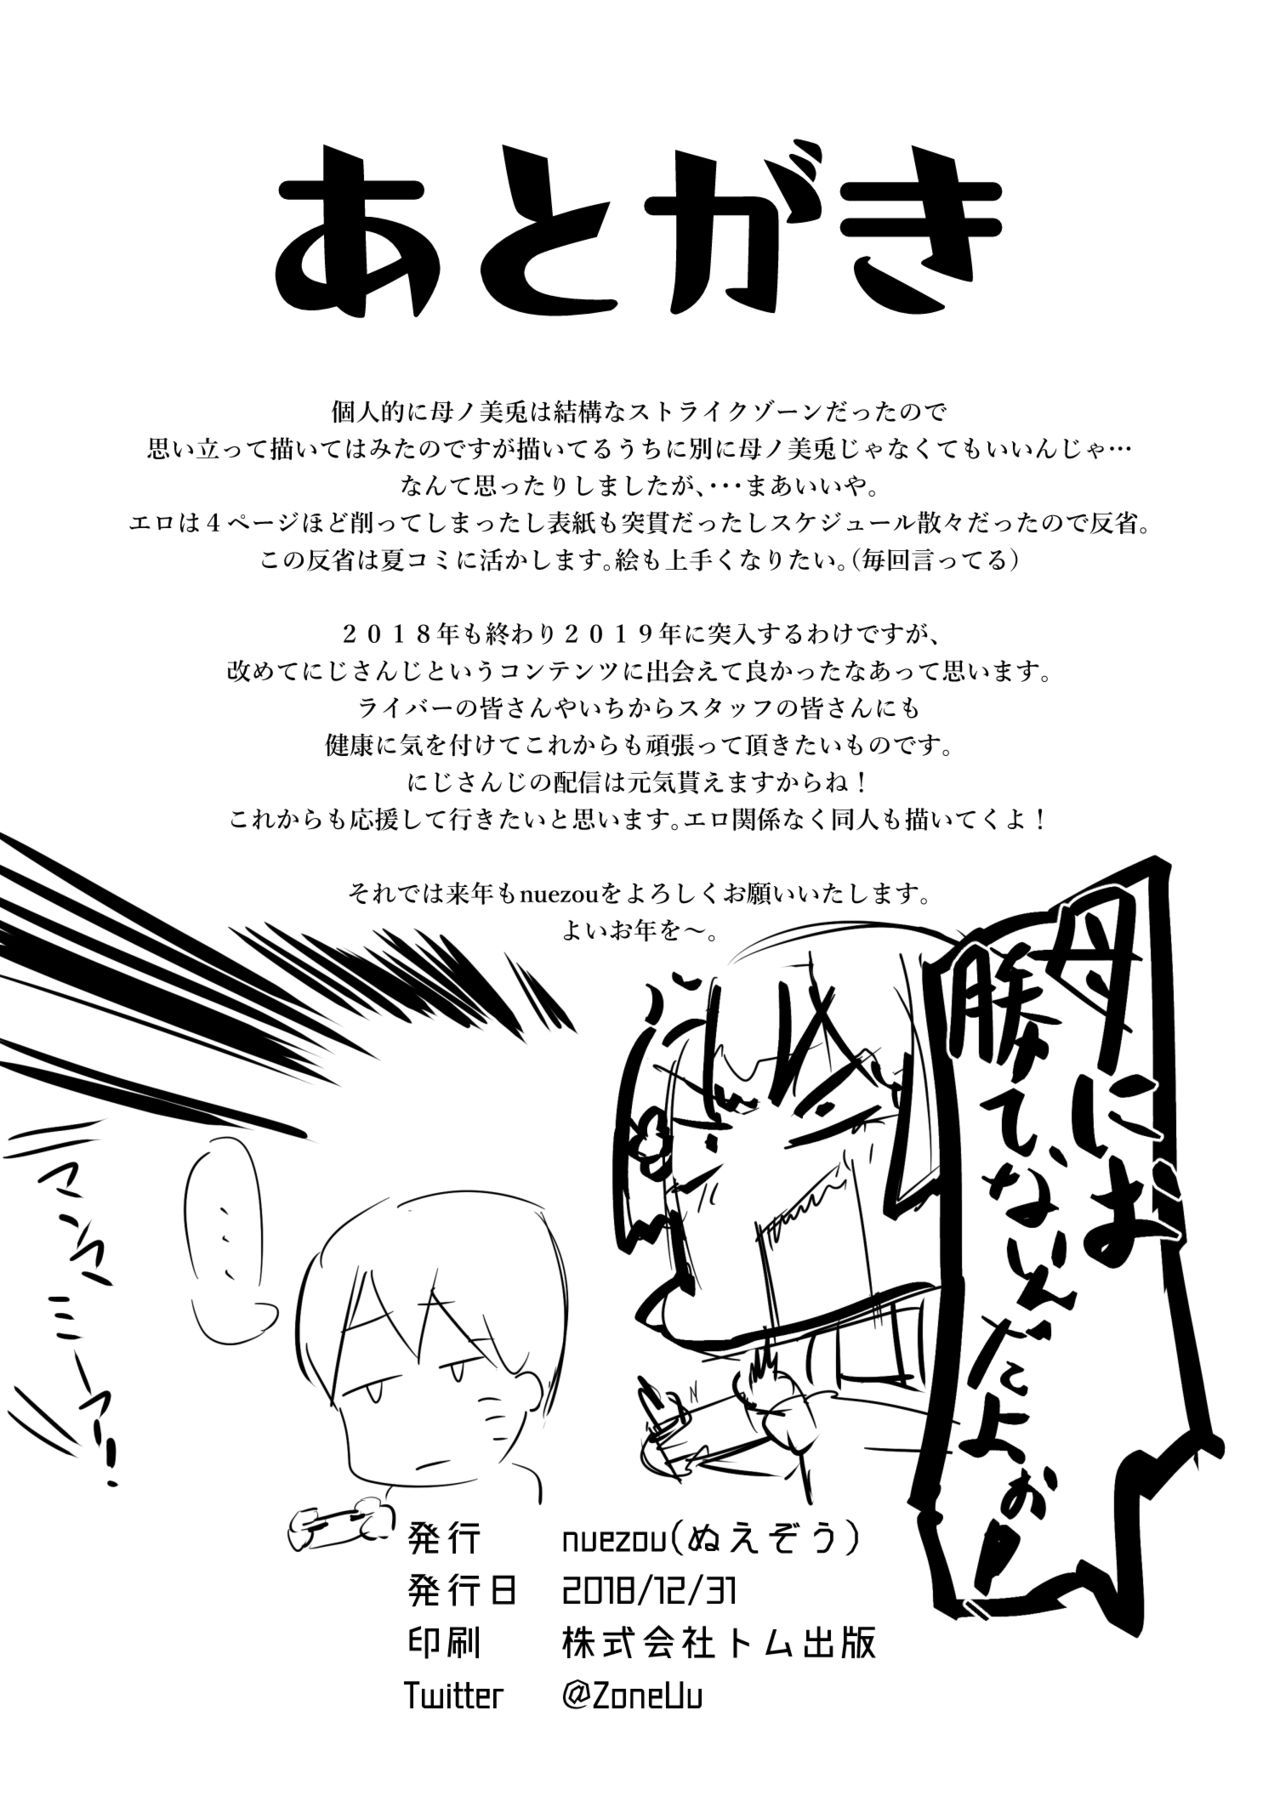 あとがき
個人的に母ノ美兎は結構なストライクゾーンだったので
思い立って描いてはみたのですが描いてるうちに別に母ノ美兎じゃなくてもいいんじゃ…
なんて思ったりしましたが、・・・まあいいや。
エロは４ページほど削ってしまったし表紙も突貫だったしスケジュール散々だったので反省。
この反省は夏コミに活かします。絵も上手くなりたい。（毎回言ってる）
２０１８年も終わり２０１９年に突入するわけですが、
改めてにじさんじというコンテンツに出会えて良かったなあって思います。
ライバーの皆さんやいちからスタッフの皆さんにも
健康に気を付けてこれからも頑張って頂きたいものです。
にじさんじの配信は元気貰えますからね！
これからも応援して行きたいと思います。エロ関係なく同人も描いてくよ！
それでは来年もnuezouをよろしくお願いいたします。
よいお年を～。
母には
勝てないんだよぉ！
・・・
マンマ
ミーアー！
発行 nuezou(ぬえぞう)
発行日 2018/12/31
印刷 株式会社トム出版
Twitter @ZoneUu